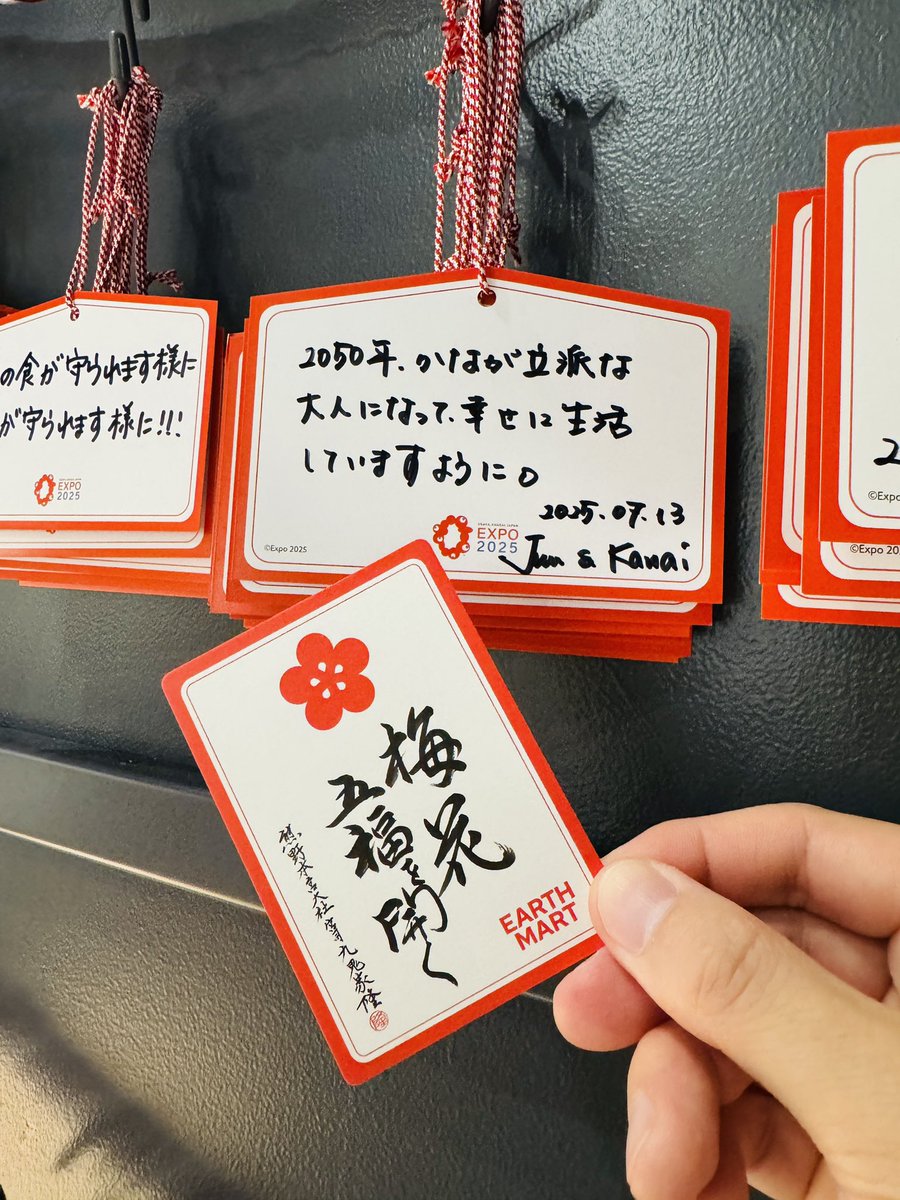 の食が守られます様に
が守られます様に!!!
EXPO
2025
2050年、かなが立派な
大人になって、幸せに生活
していますように。
2025.07.13
OSAKA, KANSAI, JAPAN
EXPO
2025
Jun & Kanai
©Expo 2025
2
©Expo
©Expo 2025
梅花
五福を開く
熊野本宮大社宮司九鬼家隆
EARTH
MART